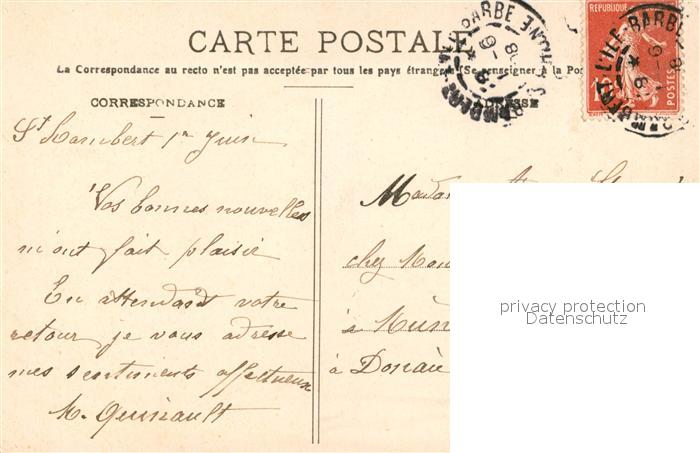 CARTE POSTALE
La Correspondance au recto n'est pas acceptée par tous les pays étrangers (Se renseigner à la Pos
CORRESPONDANCE
ADRESSE
RÉPUBLIQUE
POSTES
L'ILE-BARBE
St Rambert 1er Juin
Vos bonnes nouvelles
m'ont fait plaisir
En attendant votre
retour je vous adresse
mes sentiments affectueux
M. Quinault
Madam
chez Mon
à Mün
à Donau
privacy protection
Datenschutz